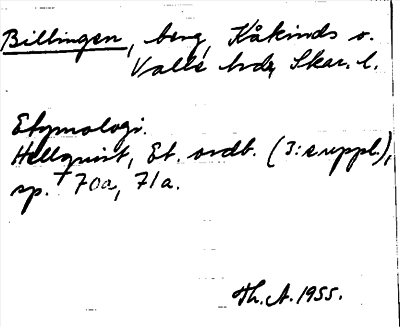 Billingen, berg, Kåkinds o.
Valle hdr, Skar. l.
Etymologi.
Hellquist, Et. ordb. (3:e uppl.),
sp. 70a, 71a.
Th. A. 1955.